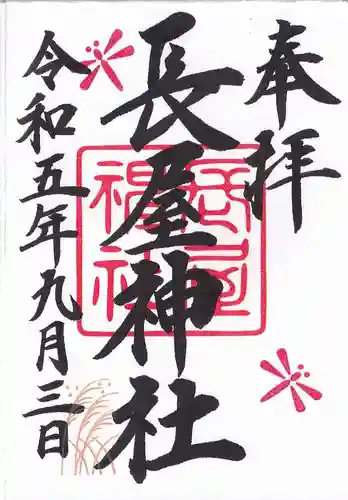 奉拝
長屋神社
令和五年九月三日